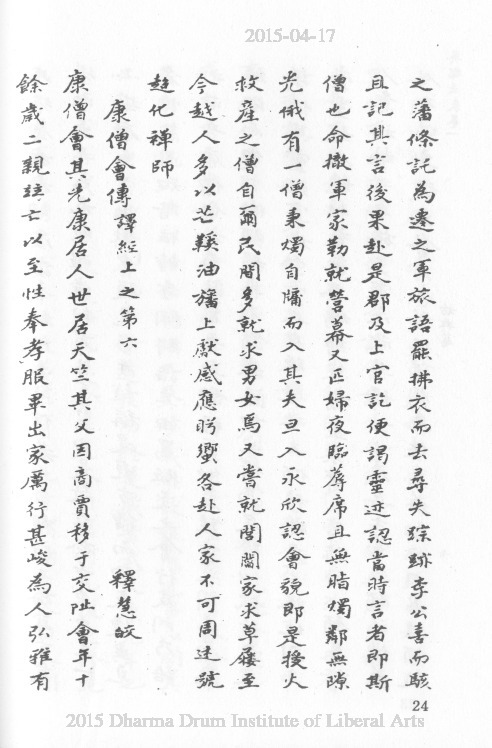 2015-04-17
之藩條託為遷之軍旅語罷拂衣而去尋失踪跡李公喜而駭
且記其言後果赴是郡及上官訖便謁靈迹認當時言者即斯
僧也命撤軍家勒就營幕又迊婦夜臨蓐席且無脂燭鄰無隙
光俄有一僧秉燭自牖而入其夫旦入永欣認會貌即是授火
救產之僧自爾民間多就求男女焉又嘗就閭閻家求草屨至
今越人多以芒鞵油旛上獻感應肹蠁各赴人家不可周述號
超化禪師
康僧會傳譯經上之第六 釋慧皎
康僧會其先康居人世居天竺其父因商賈移于交阯會年十
餘歲二親竝亡以至性奉孝服畢出家厲行甚峻為人弘雅有
24
2015 Dharma Drum Institute of Liberal Arts